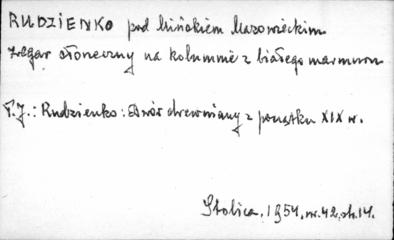 RUDZIENKO pod Mińskiem Mazowieckim
Zegar słoneczny na kolumnie z białego marmuru
F.J.: Rudzienko: Dwór drewniany z początku XIX w.
Stolica, 1954, nr. 42, str. 14.